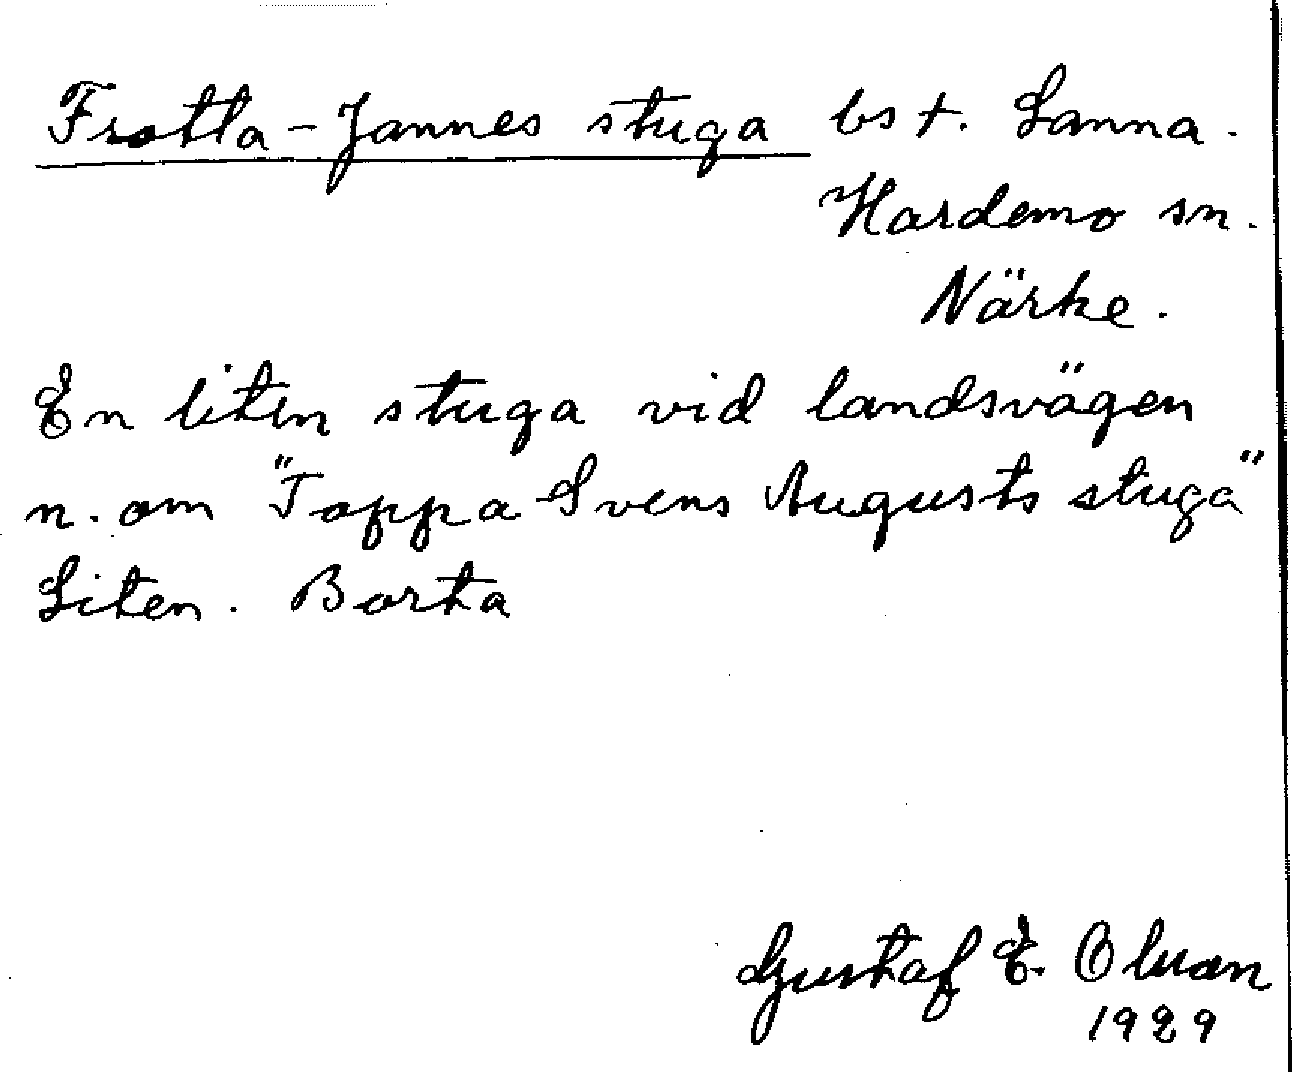 Frotta-Jannes stuga bst. Lanna.
Hardemo sn.
Närke.
En liten stuga vid landsvägen
n. om "Toppa-Svens Augusts stuga"
Liten. Borta
Gustaf E. Oluan
1929